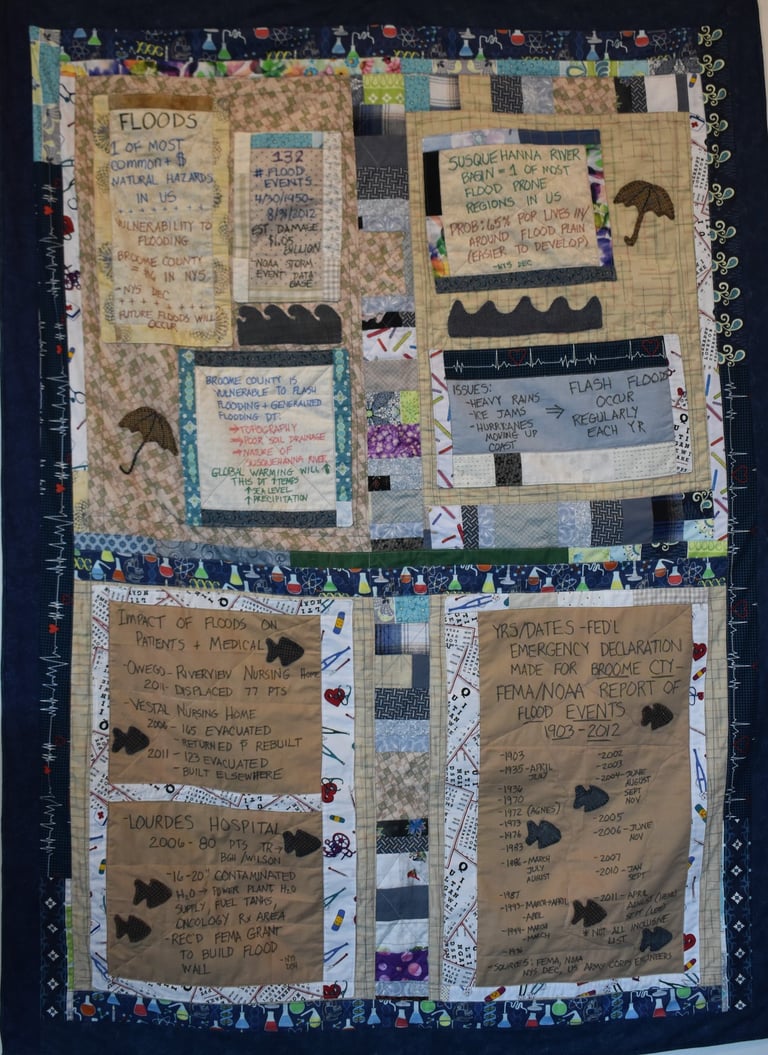 FLOODS
1 OF MOST
COMMON + $
NATURAL HAZARDS
IN US
VULNERABILITY TO
FLOODING
BROOME COUNTY
IN NYS
- NYS DEC
FUTURE FLOODS WILL
OCCUR
132
# FLOOD
EVENTS
4/30/1950-
8/31/2012
EST DAMAGE
$1.05
BILLION
-NOAA STORM
EVENT DATA
BASE
SUSQUEHANNA RIVER
BASIN = 1 OF MOST
FLOOD PRONE
REGIONS IN US
PROB: 65% POP LIVES IN/
AROUND FLOOD PLAIN
(EASIER TO DEVELOP)
-NYS DEC
BROOME COUNTY IS
VULNERABLE TO FLASH
FLOODING + GENERALIZED
FLOODING DT:
→TOPOGRAPHY
→POOR SOIL DRAINAGE
→NATURE OF
SUSQUEHANNA RIVER
GLOBAL WARMING WILL ↑
THIS DT ↑ TEMPS
↑ SEA LEVEL
↑ PRECIPITATION
ISSUES:
-HEAVY RAINS
-ICE JAMS
-HURRICANES
MOVING UP
COAST
⇒ FLASH FLOODS
OCCUR
REGULARLY
EACH YR
IMPACT OF FLOODS ON
PATIENTS + MEDICAL
-OWEGO - RIVERVIEW NURSING HOME
2011 - DISPLACED 77 PTS
-VESTAL NURSING HOME
2006 - 165 EVACUATED
-RETURNED p̄ REBUILT
2011 - 123 EVACUATED
- BUILT ELSEWHERE
-LOURDES HOSPITAL
2006 - 80 PTS TR→
BGH/WILSON
-16-20" CONTAMINATED
H2O → POWER PLANT H2O
SUPPLY, FUEL TANKS,
ONCOLOGY RX AREA
-REC'D FEMA GRANT
TO BUILD FLOOD
WALL
-NYS
DOH
YRS/DATES -FED'L
EMERGENCY DECLARATION
MADE FOR BROOME CTY-
FEMA/NOAA REPORT OF
FLOOD EVENTS
1903 - 2012
-1903
-1935 -APRIL
JULY
-1936
-1970
-1972 (AGNES)
-1973
-1976
-1983
-1986 - MARCH
JULY
AUGUST
-1987
-1993 - MARCH + APRIL
APRIL
-1994 - MARCH
MARCH
-1996
-2002
-2003
-2004 - JUNE
AUGUST
SEPT
NOV
-2005
-2006 - JUNE
NOV
-2007
-2010 - JAN
SEPT
-2011 - APRIL
AUGUST (IRENE)
SEPT (LEE)
* NOT ALL INCLUSIVE
LIST
*SOURCES: FEMA, NOAA
NYS DEC, US ARMY CORPS ENGINEERS